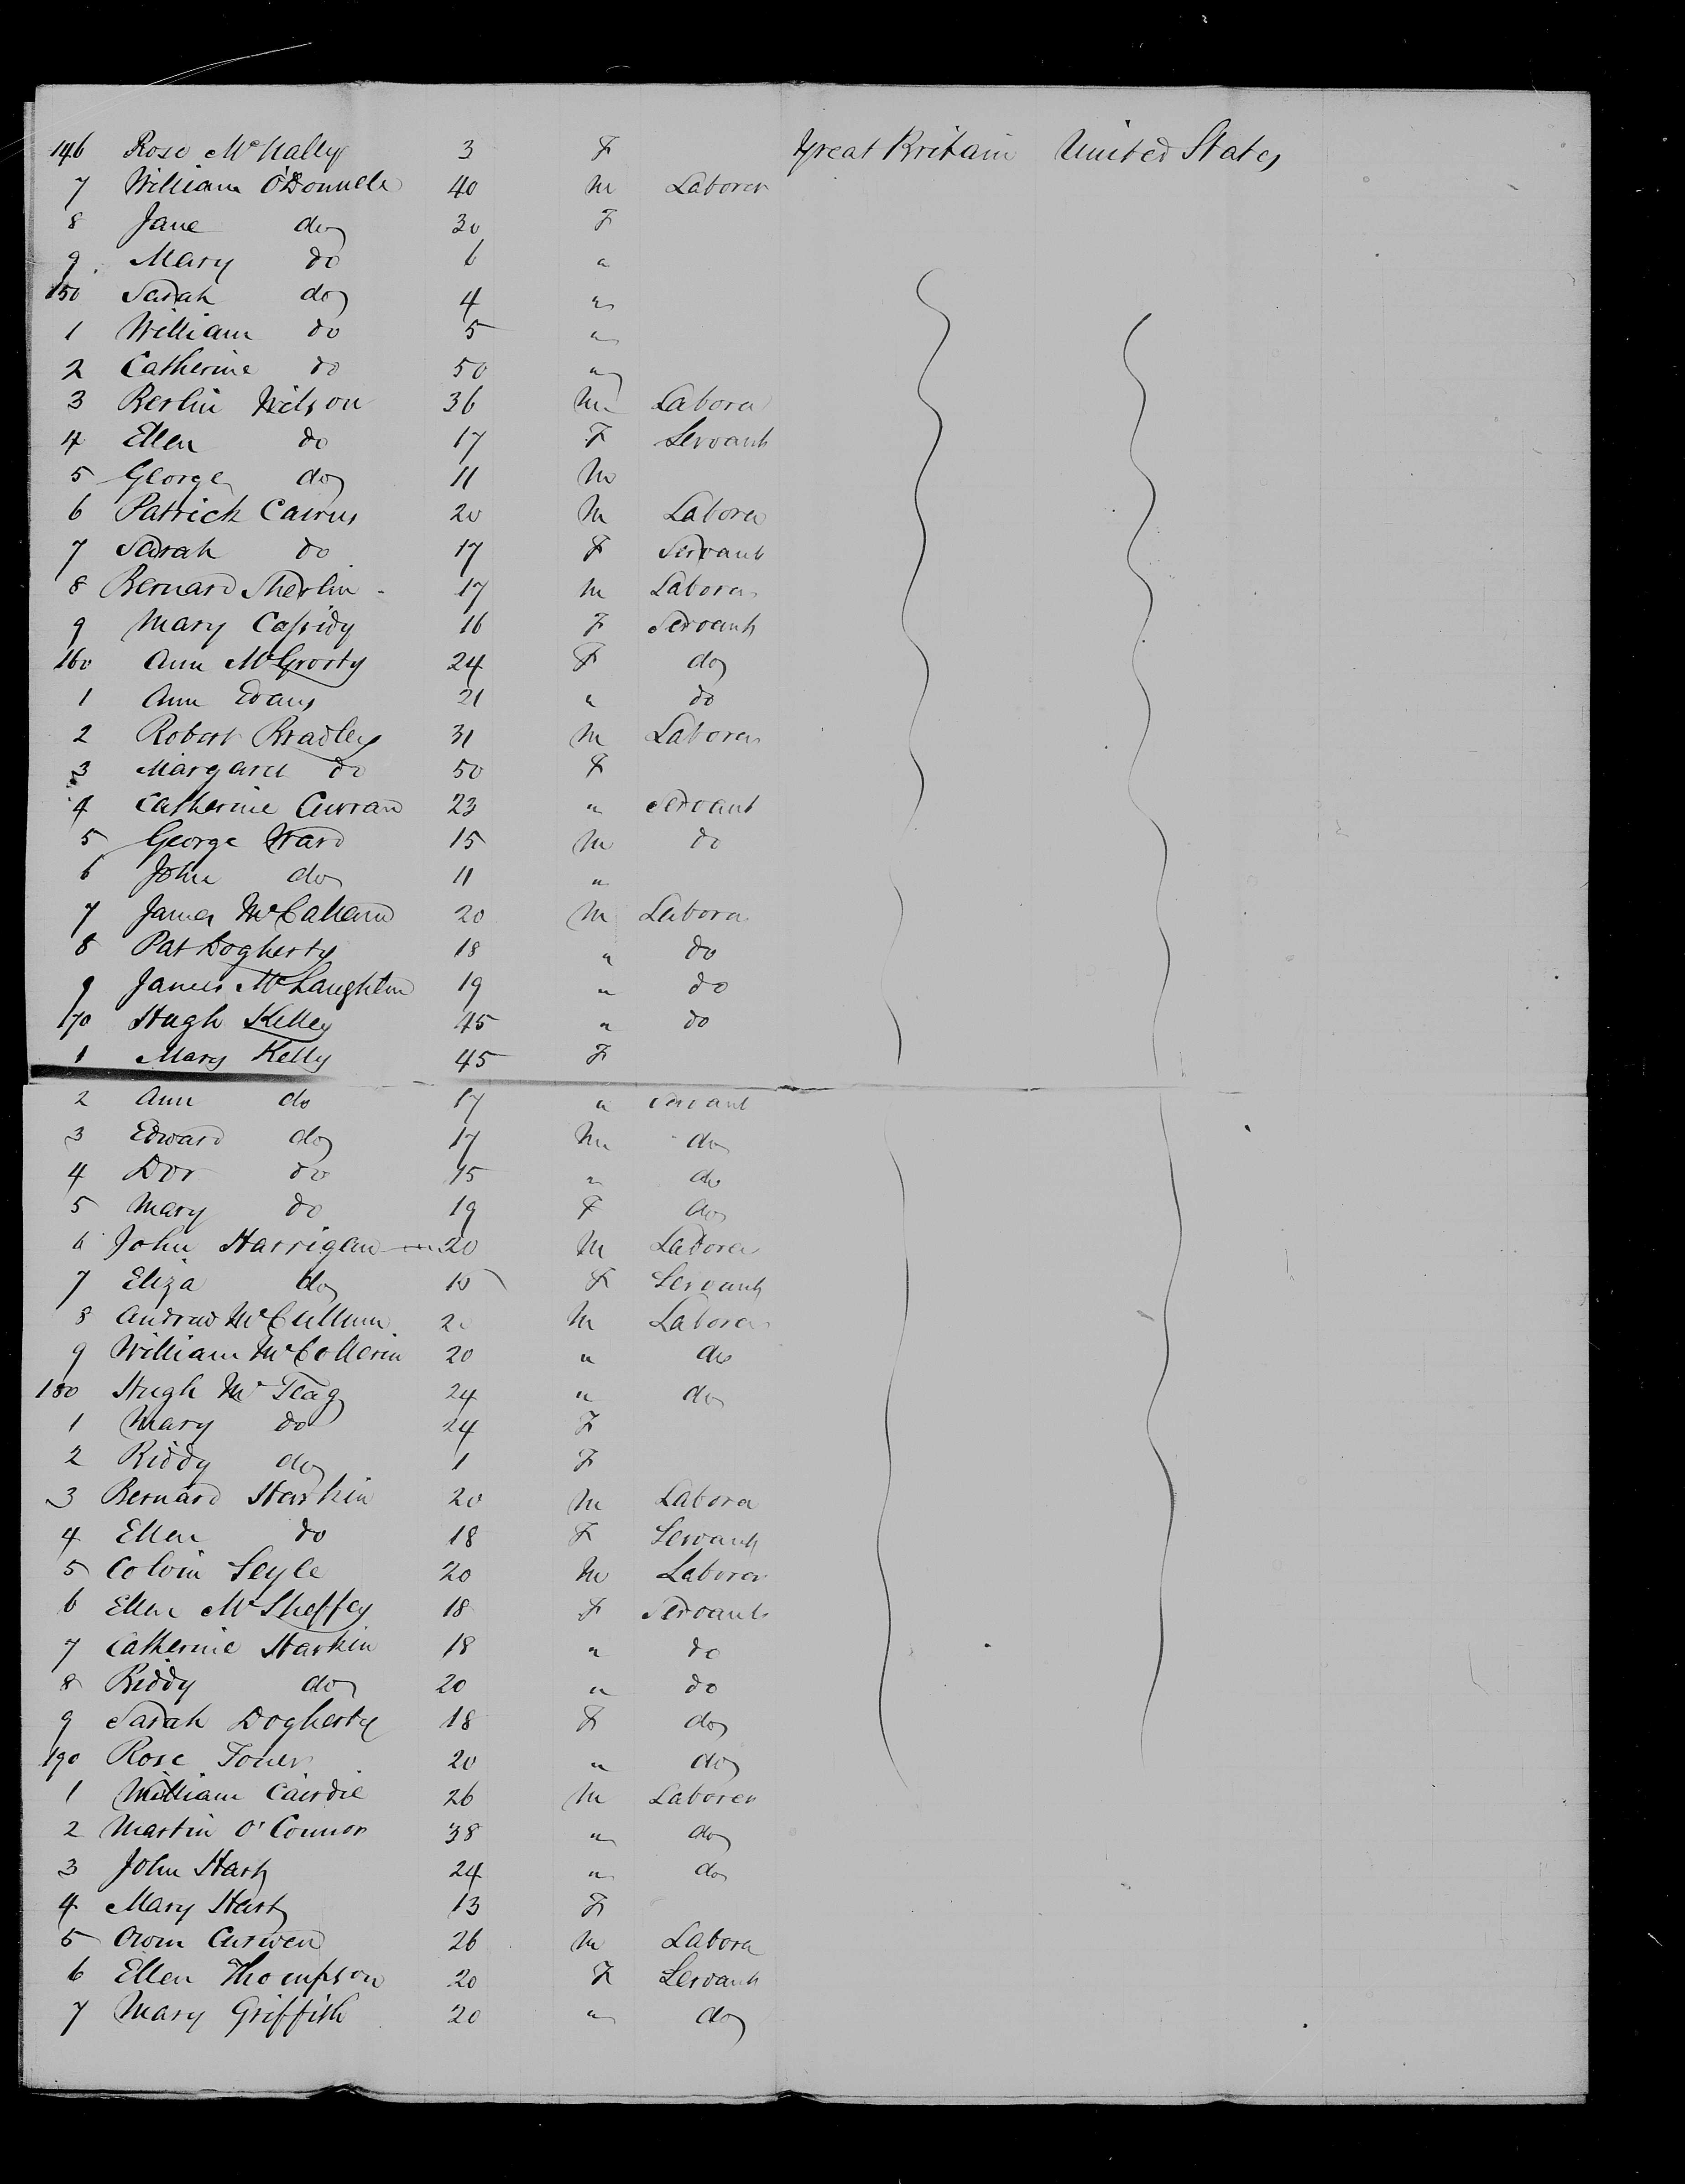 146 Rose McNally 3 F Great Britain United States
7 William O'Donnell 40 M Laborer
8 Jane do 30 F
9 Mary do 6 "
150 Sarah do 4 "
1 William do 5 "
2 Catherine do 50 "
3 Berlin Wilson 36 M Laborer
4 Ellen do 17 F Servant
5 George do 11 M
6 Patrick Cairns 20 M Laborer
7 Sarah do 17 F Servant
8 Bernard Sherlin 17 M Laborer
9 Mary Cassidy 16 F Servant
160 Ann McGrorty 24 F do
1 Ann Evans 21 " do
2 Robert Bradley 31 M Laborer
3 Margaret do 50 F
4 Catherine Curran 23 " Servant
5 George Ward 15 M do
6 John do 11 "
7 James McCalland 20 M Laborer
8 Pat Dogherty 18 " do
9 James McLaughlin 19 " do
170 Hugh Kelley 45 " do
1 Mary Kelly 45 F
2 Ann do 17 " Servant
3 Edward do 17 M do
4 do 15 " do
5 Mary do 19 F do
6 John Harrigan 20 M Laborer
7 Eliza do F Servant
8 Andrew McCullum 20 M Laborer
9 William McCollerin 20 " do
180 Hugh McTeag 24 " do
1 Mary do 24 F
2 Biddy do 1 F
3 Bernard Harkin 20 M Laborer
4 Ellen do 18 F Servant
5 Colvin 20 M Laborer
6 Ellen McSheffey 18 F Servant
7 Catherine Harkin 18 " do
8 Biddy do 20 " do
9 Sarah Dogherty 18 F do
190 Rose 20 " do
1 William Cairdie 26 M Laborer
2 Martin O'Connor 38 " do
3 John Hart 24 " do
4 Mary Hart 13 F
5 Owen Curwen 26 M Laborer
6 Ellen Thompson 20 F Servant
7 Mary Griffith 20 " do